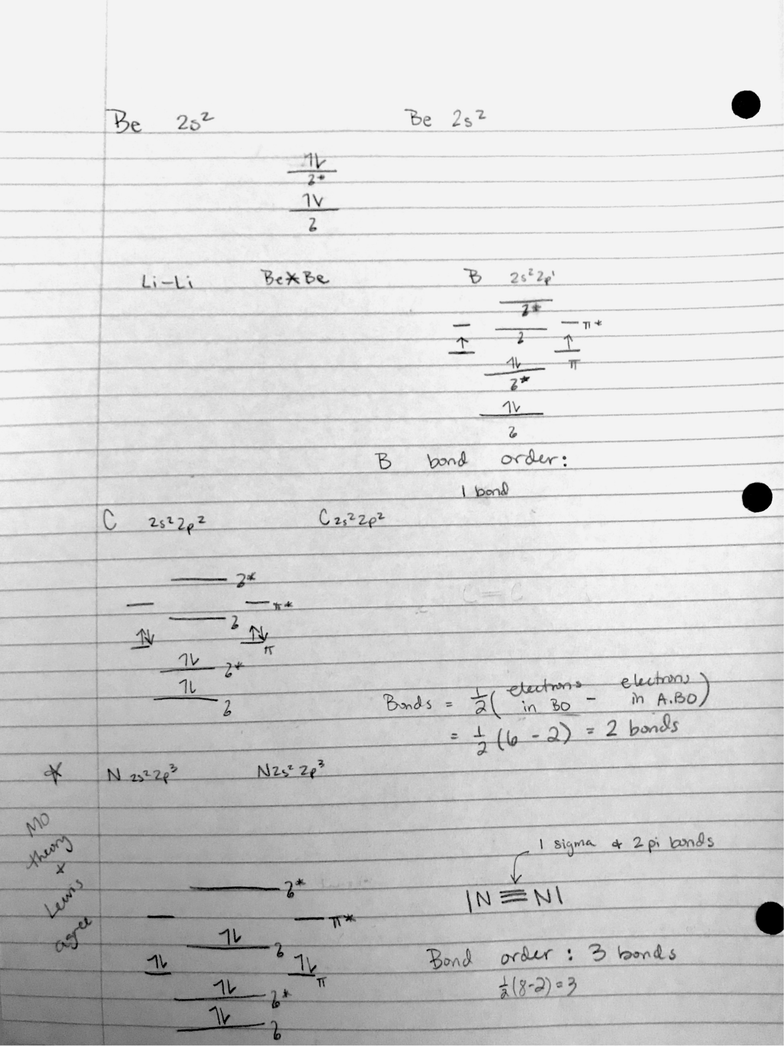 Be 2s² Be 2s²
↿⇂
σ*
↿⇂
σ
Li-Li Be*Be B 2s²2p¹
σ*
π*
↑ σ ↑
π
↿⇂
σ*
↿⇂
σ
B bond order:
1 bond
C 2s²2p² C 2s²2p²
σ*
π*
σ
↑↓ ↑↓
π
↿⇂ σ*
↿⇂
σ
Bonds = ½( electrons in BO − electrons in A.BO )
= ½(6 - 2) = 2 bonds
* N 2s²2p³ N 2s²2p³
MO
theory
+
Lewis
agree
1 sigma & 2 pi bonds
|N≡N|
σ*
π*
↿⇂ σ
↿⇂ ↿⇂
π
↿⇂ σ*
↿⇂ σ
Bond order : 3 bonds
½(8-2)=3